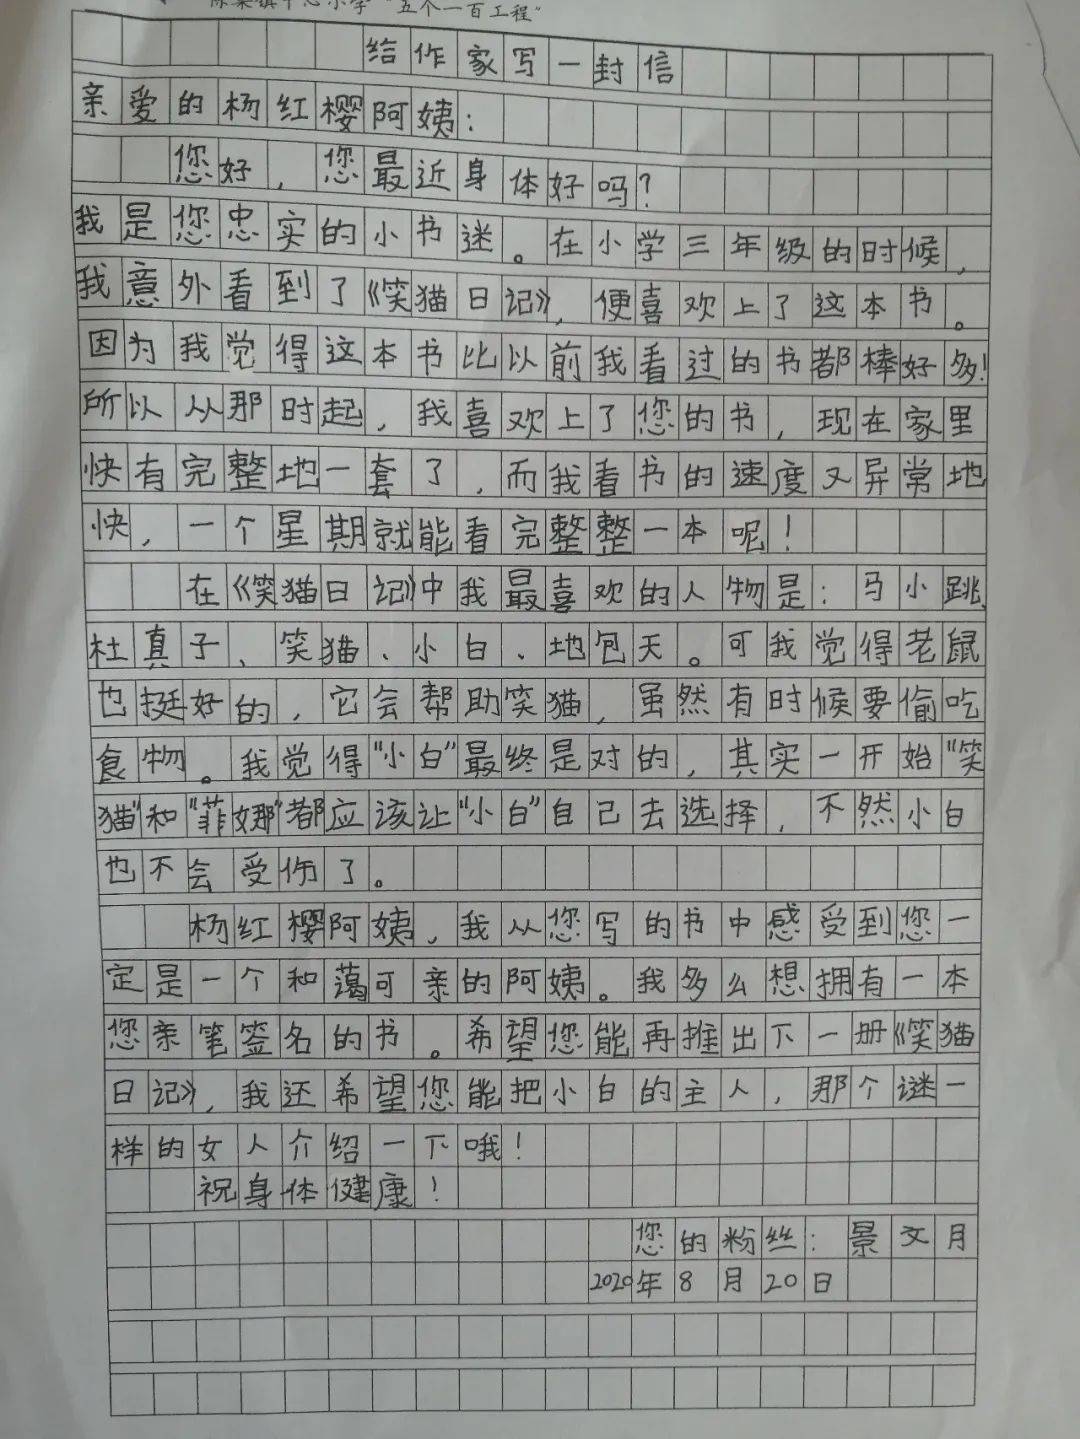 中心小学"五个一百工程"
给作家写一封信
亲爱的杨红樱阿姨：
您好，您最近身体好吗？
我是您忠实的小书迷。在小学三年级的时候，
我意外看到了《笑猫日记》，便喜欢上了这本书。
因为我觉得这本书比以前我看过的书都棒好多！
所以从那时起，我喜欢上了您的书，现在家里
快有完整地一套了，而我看书的速度又异常地
快，一个星期就能看完整整一本呢！
在《笑猫日记》中我最喜欢的人物是：马小跳、
杜真子、笑猫、小白、地包天。可我觉得老鼠
也挺好的，它会帮助笑猫，虽然有时候要偷吃
食物。我觉得"小白"最终是对的，其实一开始"笑
猫"和"菲娜"都应该让"小白"自己去选择，不然小白
也不会受伤了。
杨红樱阿姨，我从您写的书中感受到您一
定是一个和蔼可亲的阿姨。我多么想拥有一本
您亲笔签名的书。希望您能再推出下一册《笑猫
日记》，我还希望您能把小白的主人，那个谜一
样的女人介绍一下哦！
祝身体健康！
您的粉丝：景文月
2020年8月20日